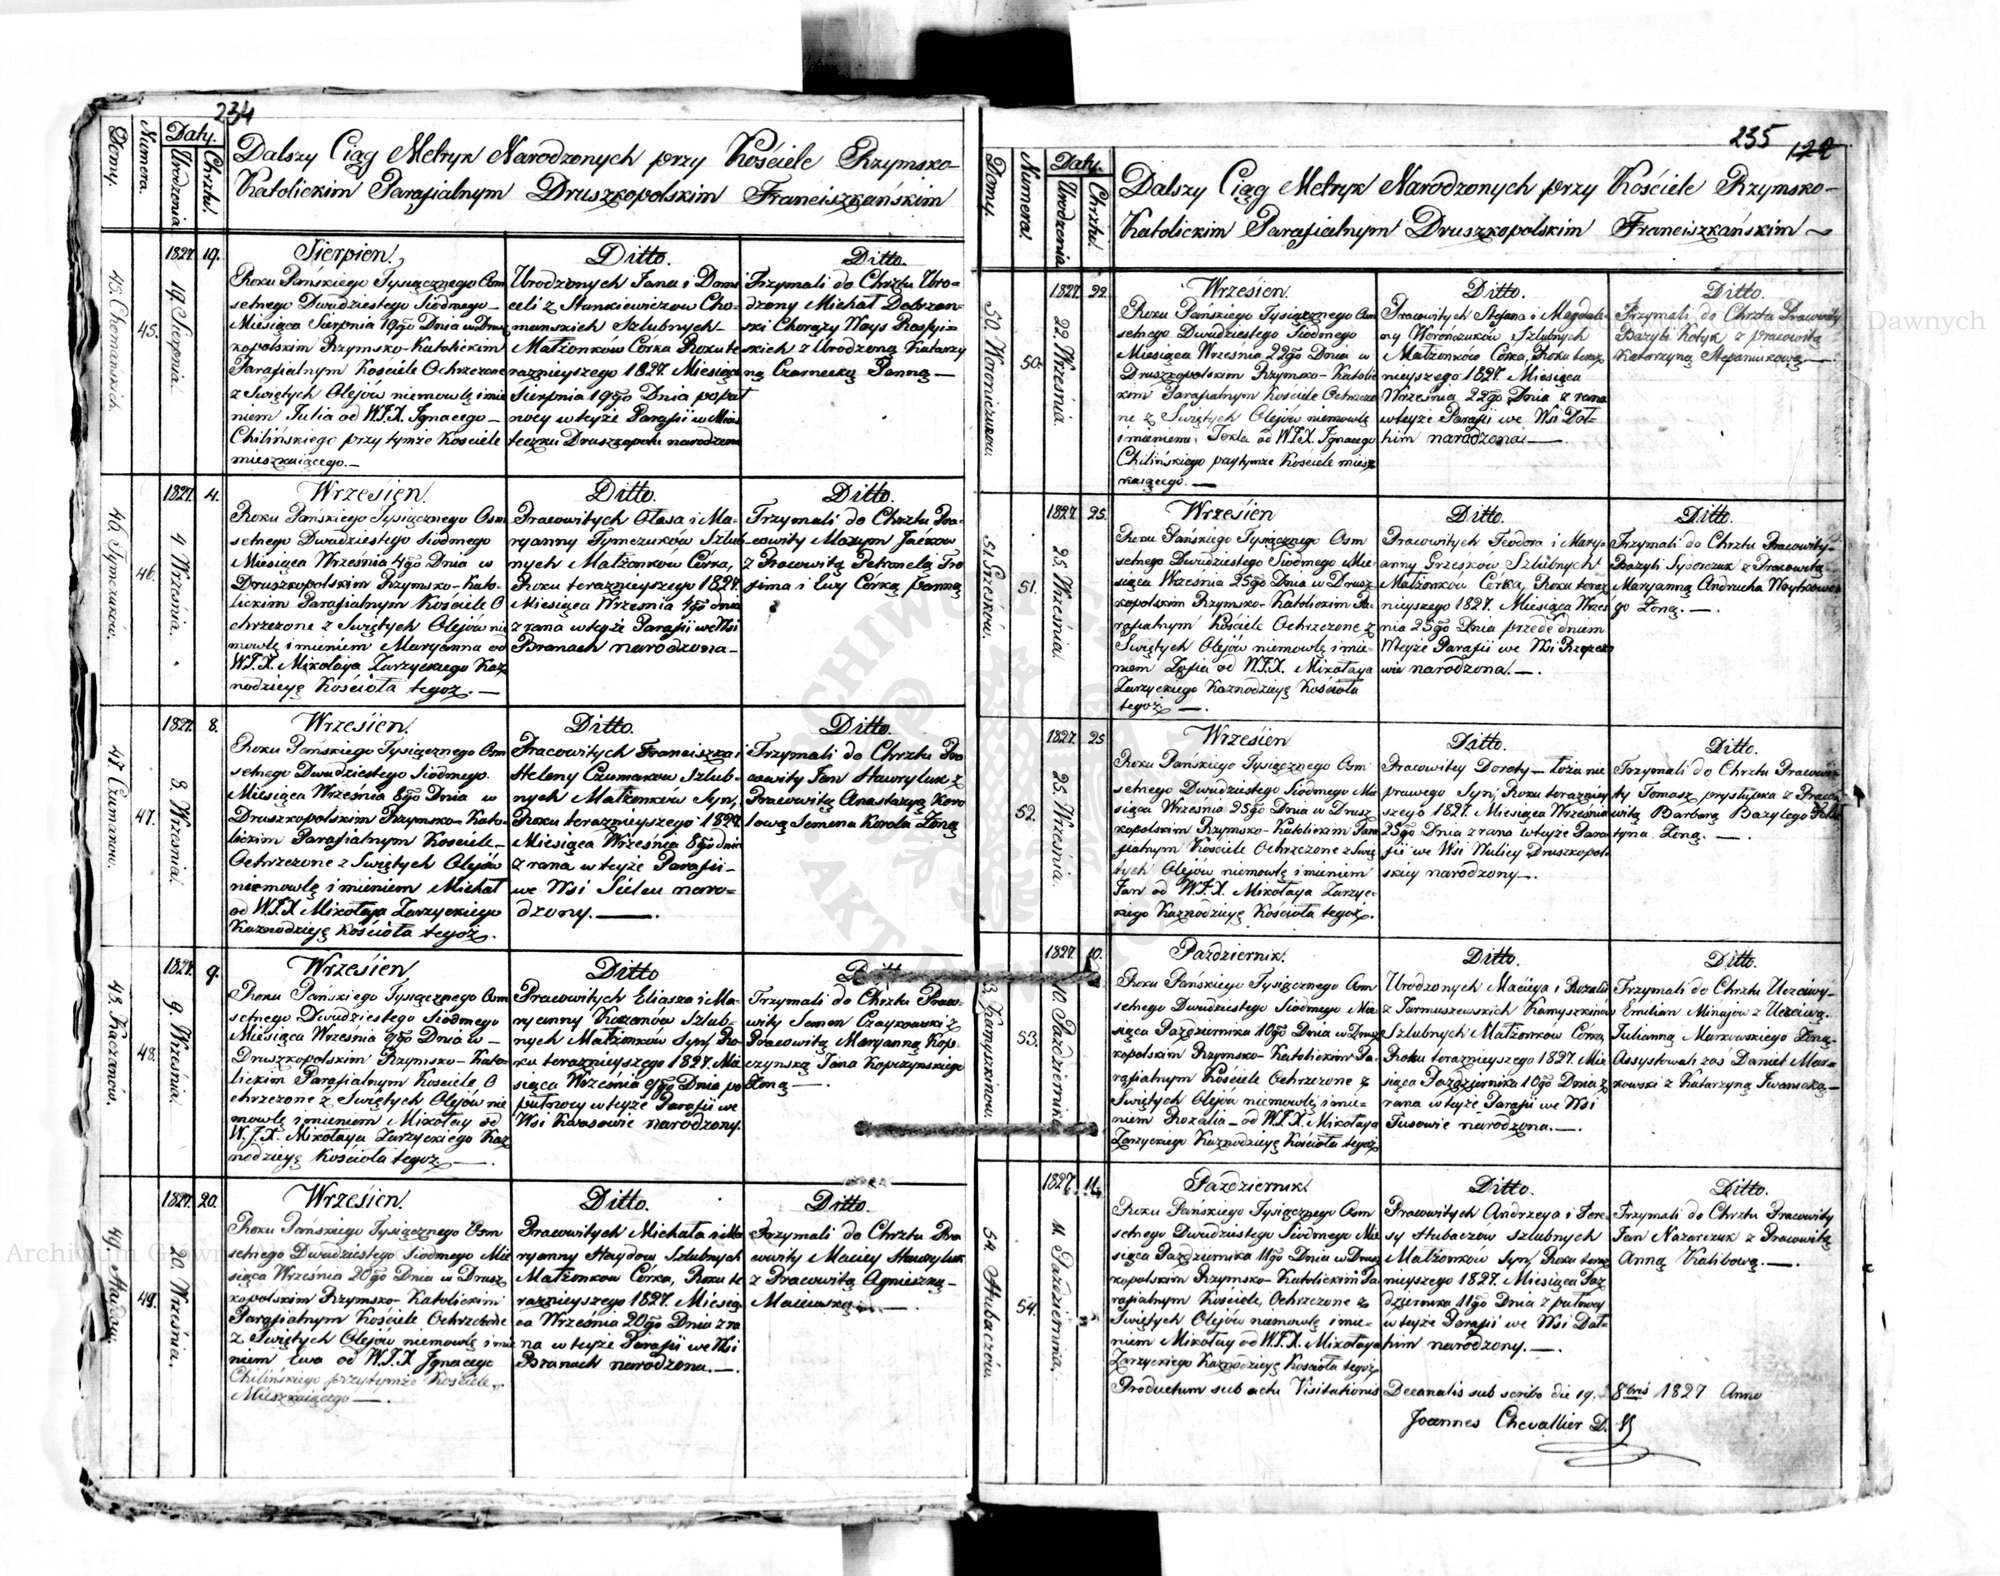 234
Domy.
Numera.
Daty.
Urodzenia
Chrztu.
Dalszy Ciąg Metryk Narodzonych przy Kościele Rzymsko-
Katolickim Parafialnym Druszkopolskim Franciszkańskim
45. Chomanskich.
45.
1827. 19.
19. Sierpnia.
Sierpien.
Roku Pańskiego Tysiącznego Osm
setnego Dwudziestego Siodmego
Miesiąca Sierpnia 19go Dnia w Drusz
kopolskim Rzymsko-Katolickim
Parafialnym Kościele Ochrzczone
z Swiętych Olejów niemowlę imie
niem Julia od W.J.X. Ignacego
Chilińskiego przy tymże Kościele
mieszkaiącego.—
Ditto.
Urodzonych Jana i Domi
celi z Stankiewiczow Cho-
manskich Szlubnych
Małżonków Córka Roku te
raznieyszego 1827. Miesiąca
Sierpnia 19go Dnia popoł
nocy w teyże Parafii w Mias
teczku Druszkopolu narodzona
Ditto.
Trzymali do Chrztu Uro-
dzony Michał Dobrzan-
ski Chorąży Woys Rossyi-
skich z Urodzoną Katarzy
ną Czarnecką Panną—
46. Tymczuków.
46.
1827. 4.
4. Września.
Wrzesien.
Roku Pańskiego Tysiącznego Osm
setnego Dwudziestego Siodmego
Miesiąca Września 4go Dnia w
Druszkopolskim Rzymsko-Kato-
lickim Parafialnym Kościele O
chrzczone z Swiętych Olejów nie
mowlę imieniem Maryanna od
W.J.X. Mikołaya Zarzyckiego Kaz
nodzieyę Kościoła tegoż.—
Ditto.
Pracowitych Ołasa i Ma-
ryanny Tymczuków Szlub-
nych Małżonków Córka,
Roku teraznieyszego 1827.
Miesiąca Września 4go dnia
z rana w teyże Parafii we Wsi
Branach narodzona—
Ditto.
Trzymali do Chrztu Pra-
cowity Maxym Jackow
z Pracowitą Petronelą Tro
fima i Ewy Córką panną
47. Czumanow.
47.
1827. 8.
8. Września.
Wrzesien.
Roku Pańskiego Tysiącznego Osm
setnego Dwudziestego Siodmego
Miesiąca Września 8go Dnia w
Druszkopolskim Rzymsko-Kato-
lickim Parafialnym Kościele
Ochrzczone z Swiętych Olejów
niemowlę imieniem Michał
od W.J.X Mikołaja Zarzyckiego
Kaznodzieję Kościoła tegoż.
Ditto.
Pracowitych Franciszka i
Heleny Czumanow Szlub-
nych Małżonków Syn,
Roku teraznieyszego 1827.
Miesiąca Września 8go dnia
z rana w teyże Parafii
we Wsi Sielcu naro-
dzony.—
Ditto.
Trzymali do Chrztu Pra
cowity Jan Hawryluk z
Pracowitą Anastazyą Koro
lową Semena Korola Żoną
48. Kaczanow.
48.
1827. 9.
9. Września.
Wrzesien.
Roku Pańskiego Tysiącznego Osm
setnego Dwudziestego Siodmego
Miesiąca Września 9go Dnia w
Druszkopolskim Rzymsko-Kato-
lickim Parafialnym Kościele O
chrzczone z Swiętych Olejów nie
mowlę imieniem Mikołay od
W.J.X. Mikołaya Zarzyckiego Kaz
nodzieyę Kościoła tegoż—.
Ditto
Pracowitych Eliasza i Ma-
ryanny Kazanów Szlub-
nych Małżonków Syn, Ro
ku teraznieyszego 1827. Mie
siąca Września 9go Dnia po
pułnocy w teyże Parafii we
Wsi Kwasowie narodzony.
Trzymali do Chrztu Praco
wity Semen Czaykowski z
Pracowitą Maryanną Kop-
czynską Jana Kopczynskiego
Żoną—.
49. Haydow.
49.
1827. 20.
20. Września.
Wrzesien.
Roku Pańskiego Tysiącznego Osm
setnego Dwudziestego Siodmego Mie
siąca Września 20go Dnia w Drusz
kopolskim Rzymsko-Katolickim
Parafialnym Kościele Ochrzczone
z Swiętych Olejów niemowlę imie
niem Ewa od W.J.X Ignacego
Chilińskiego przytymże Kościele
Mieszkaiącego—.
Ditto.
Pracowitych Michała i Ma
ryanny Haydow Szlubnych
Małżonkow Córka, Roku te
raznieyszego 1827. Miesią
ca Września 20go Dnia z ra
na w teyże Parafii we Wsi
Branach narodzona.—.
Ditto.
Trzymali do Chrztu Pra
cowity Maciey Hawryluk
z Pracowitą Agnieszką
235
122
Domy.
Numera.
Daty.
Urodzenia
Chrztu.
Dalszy Ciąg Metryk Narodzonych przy Kościele Rzymsko-
Katolickim Parafialnym Druszkopolskim Franciszkańskim
50. Woronczukow.
50.
1827. 22.
22. Września.
Wrzesien.
Roku Pańskiego Tysiącznego Osm
setnego Dwudziestego Siodmego
Miesiąca Września 22go Dnia w
Druszkopolskim Rzymsko-Katolic
kim Parafialnym Kościele Ochrzczo
ne z Swiętych Olejów niemowlę
imieniem Tekla od W.J.X. Ignacego
Chilińskiego przytymże Kościele miesz
kaiącego.—
Ditto.
Pracowitych Stefana i Magdale
ny Worończuków Szlubnych
Małżonków Córka, Roku teraz
nieyszego 1827. Miesiąca
Września 22go Dnia z rana
w teyże Parafii we Wsi Doł-
kim narodzona.—
Ditto.
Trzymali do Chrztu Pracowity
Bazyli Kotyk z pracowitą
Katarzyną Stepaniukową.—
51. Grzesków.
51.
1827. 25.
25. Września.
Wrzesien
Roku Pańskiego Tysiącznego Osm
setnego Dwudziestego Siodmego Mie-
siąca Września 25go Dnia w Drusz
kopolskim Rzymsko-Katolickim Pa-
rafialnym Kościele Ochrzczone z
Swiętych Olejów niemowlę imie-
niem Zofia od W.J.X. Mikołaya
Zarzyckiego Kaznodzieyę Kościoła
tegoż—.
Ditto.
Pracowitych Teodora i Mary-
anny Grzesków Szlubnych
Małżonków Córka, Roku teraz
nieyszego 1827. Miesiąca Wrześ
nia 25go Dnia przede dniem
Wteyże Parafii we Wsi
narodzona.—.
Ditto.
Trzymali do Chrztu Pracowity
Bazyli Sydorczuk z Pracowitą
Maryanną Andrucha Woytkowe
go Żoną.—.
52.
1827. 25
25. Września.
Wrzesien
Roku Pańskiego Tysiącznego Osm
setnego Dwudziestego Siodmego Mie
siąca Września 25go Dnia w Drusz
kopolskim Rzymsko-Katolickim Para
fialnym Kościele Ochrzczone z Swię
tych Olejów niemowlę imieniem
Jan od W.J.X. Mikołaya Zarzyc-
kiego Kaznodzieyę Kościoła tegoż.
Ditto.
Pracowitey Doroty—łoża nie
prawego Syn, Roku terazniey
szego 1827. Miesiąca Września
25go Dnia z rana w teyże Para
fii we Wsi Nulicy Druszkopol
skiey narodzony—.
Ditto.
Trzymali do Chrztu Pracowi-
ty Tomasz prystupka z Praco
witą Barbarą Bazylego
Żoną.—.
53. Kamyszkinow.
53.
1827. 10.
10. Października
Pazdziernik.
Roku Pańskiego Tysiącznego Osm
setnego Dwudziestego Siodmego Mie
siąca Pazdziernika 10go Dnia w Drusz
kopolskim Rzymsko-Katolickim Pa-
rafialnym Kościele Ochrzczone z
Swiętych Olejów niemowlę imie-
niem Rozalia—od W.J.X. Mikołaya
Zarzyckiego Kaznodzieyę Kościoła tegoż
Ditto.
Urodzonych Macieja i Rozalii
z Jarmuszewskich Kamyszkinów
Szlubnych Małżonków Córka,
Roku teraznieyszego 1827. Mie
siąca Pazdziernika 10go Dnia z
rana w teyże Parafii we Wsi
Tusowie narodzona.—.
Ditto.
Trzymali do Chrztu Uczciwy
Emilian Minajow z Uczciwą
Julianną Markowskiego Żoną.
Assystowali zas Daniel Mar-
kowski z Katarzyną Iwanicką.—
54. Hubaczów.
54.
1827. 11.
11. Pazdziernika.
Pazdziernik.
Roku Pańskiego Tysiącznego Osm
setnego Dwudziestego Siodmego Mie
siąca Pazdziernika 11go Dnia w Drusz
kopolskim Rzymsko-Katolickim Pa
rafialnym Kościele, Ochrzczone z
Swiętych Olejów niemowlę imie-
niem Mikołay od W.J.X. Mikołaya
Zarzyckiego Kaznodzieyę Kościoła tegoż
Ditto.
Pracowitych Andrzeya i Tere-
sy Hubaczów Szlubnych
Małżonków Syn, Roku teraz
nieyszego 1827. Miesiąca Paz
dziernika 11go Dnia z pułnocy
w teyże Parafii we Wsi Doł-
kim narodzony.—.
Ditto.
Trzymali do Chrztu Pracowity
Jan Nazarczuk z Pracowitą
Anną Kalibową.—.
Productum sub actu Visitationis Decanalis sub scribo die 19. 8bris 1827 Anno
Joannes Chevallier D.